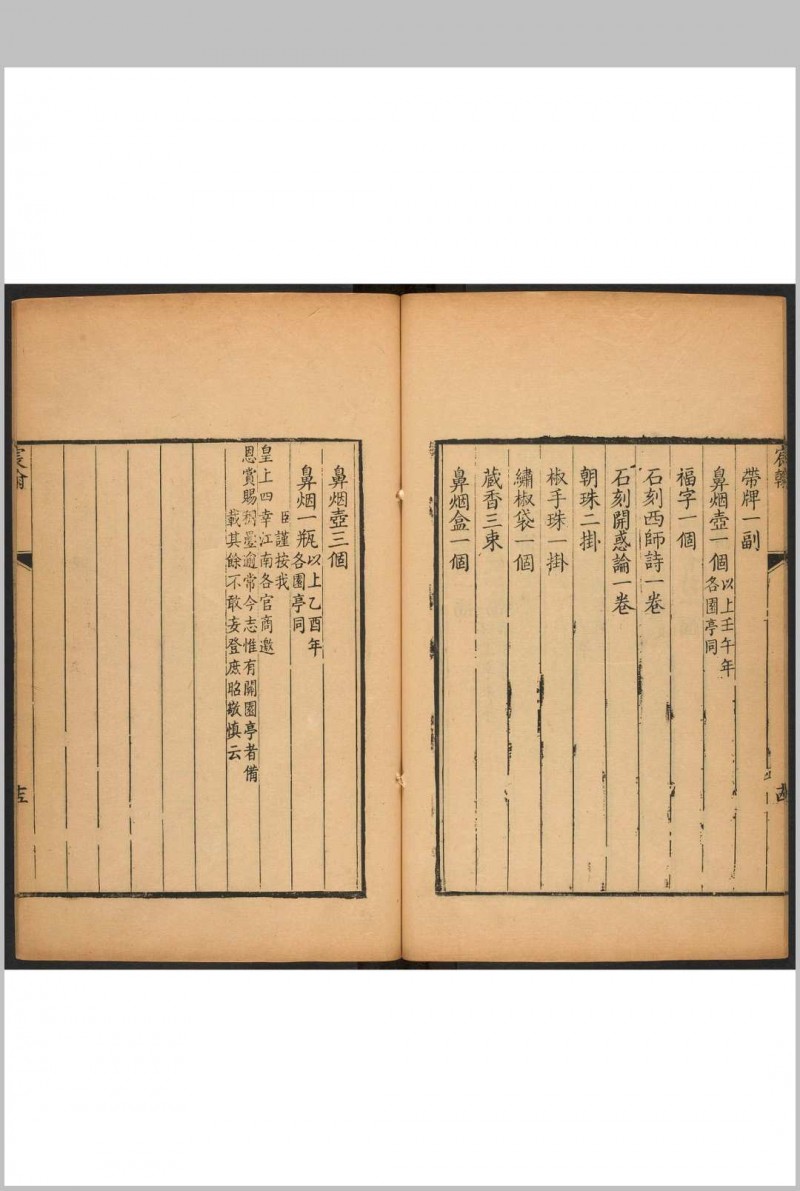 帶牌一副
鼻烟壺一個以上壬午年
各園亭同
福字一個
石刻西師詩一卷
石刻開惑論一卷
朝珠二掛
椒手珠一掛
繡椒袋一個
藏香三束
鼻烟盒一個
鼻烟壺三個
鼻烟一瓶以上乙酉年
各園亭同
臣謹按我
皇上四幸江南各官商邀
恩賞賜稠疊逾常今志惟有開園亭者備
載其餘不敢妄登庶昭敬慎云
宸翰